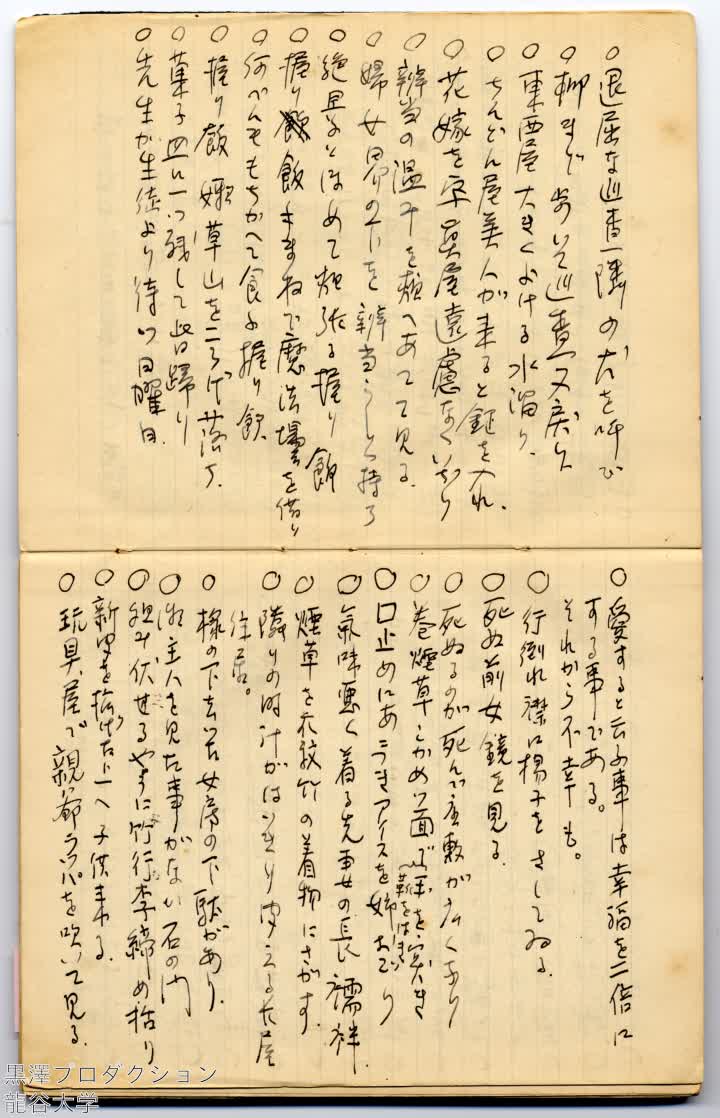 ○退屈な巡査隣の犬を呼び
○柳まであいて巡査又戻り
○東西屋大きくよける水溜り
○ちんどん屋美人が来ると鉦を入れ
○花嫁を写真屋遠慮なくいぢり
○辨当の温みを頬へあてて見る
○婦女界の下を辨当らしく持ち
○絶景とほめて頬張る握り飯
○握り飯 手まねで魔法場を借り
○何べんももちかへて食ふ握り飯
○握り飯 嫩草山をころげ落ち
○菓子皿に一つ残して皆歸り
○先生が生徒より待つ日曜日
○愛すると云ふ事は幸福を二倍に
する事である。
それから不幸も。
○行倒れ襟に楊子をさしてゐる
○死ぬ前女鏡を見る
○死ぬるのが死んで座敷が広くなり
○巻煙草しかめつ面で 突き
○口止めにあつきアイスを姉おごり
○氣味悪く着る先妻の長襦袢
○煙草を衣紋竹の着物にさがす
○隣りの時計がはつきり聞える長屋
住居。
○椽の下去つた女房の下駄があり
○ 主人を見た事がない石の門
○組み伏せるやうに竹行李締め括り
○新 を拡げた上へ子供来る
○玩具屋で親爺ラッパを吹いて見る
黒澤プロダクション
龍谷大学